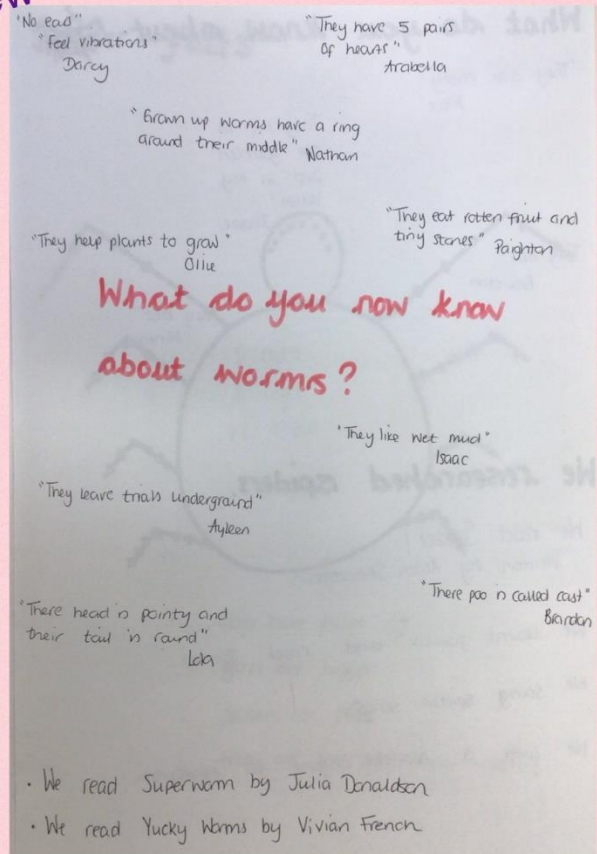 "No ead"
"feel vibrations"
Darcy
"They have 5 pairs
of hearts"
Arabella
"Grown up worms have a ring
around their middle" Nathan
"They eat rotten fruit and
tiny stones" Paighton
"They help plants to grow"
Ollie
What do you now know
about worms?
"They like wet mud"
Isaac
"They leave trials underground"
Ayleen
"There poo is called cast"
Brandon
"There head is pointy and
their tail is round"
Lola
• We read Superworm by Julia Donaldson
• We read Yucky Worms by Vivian French